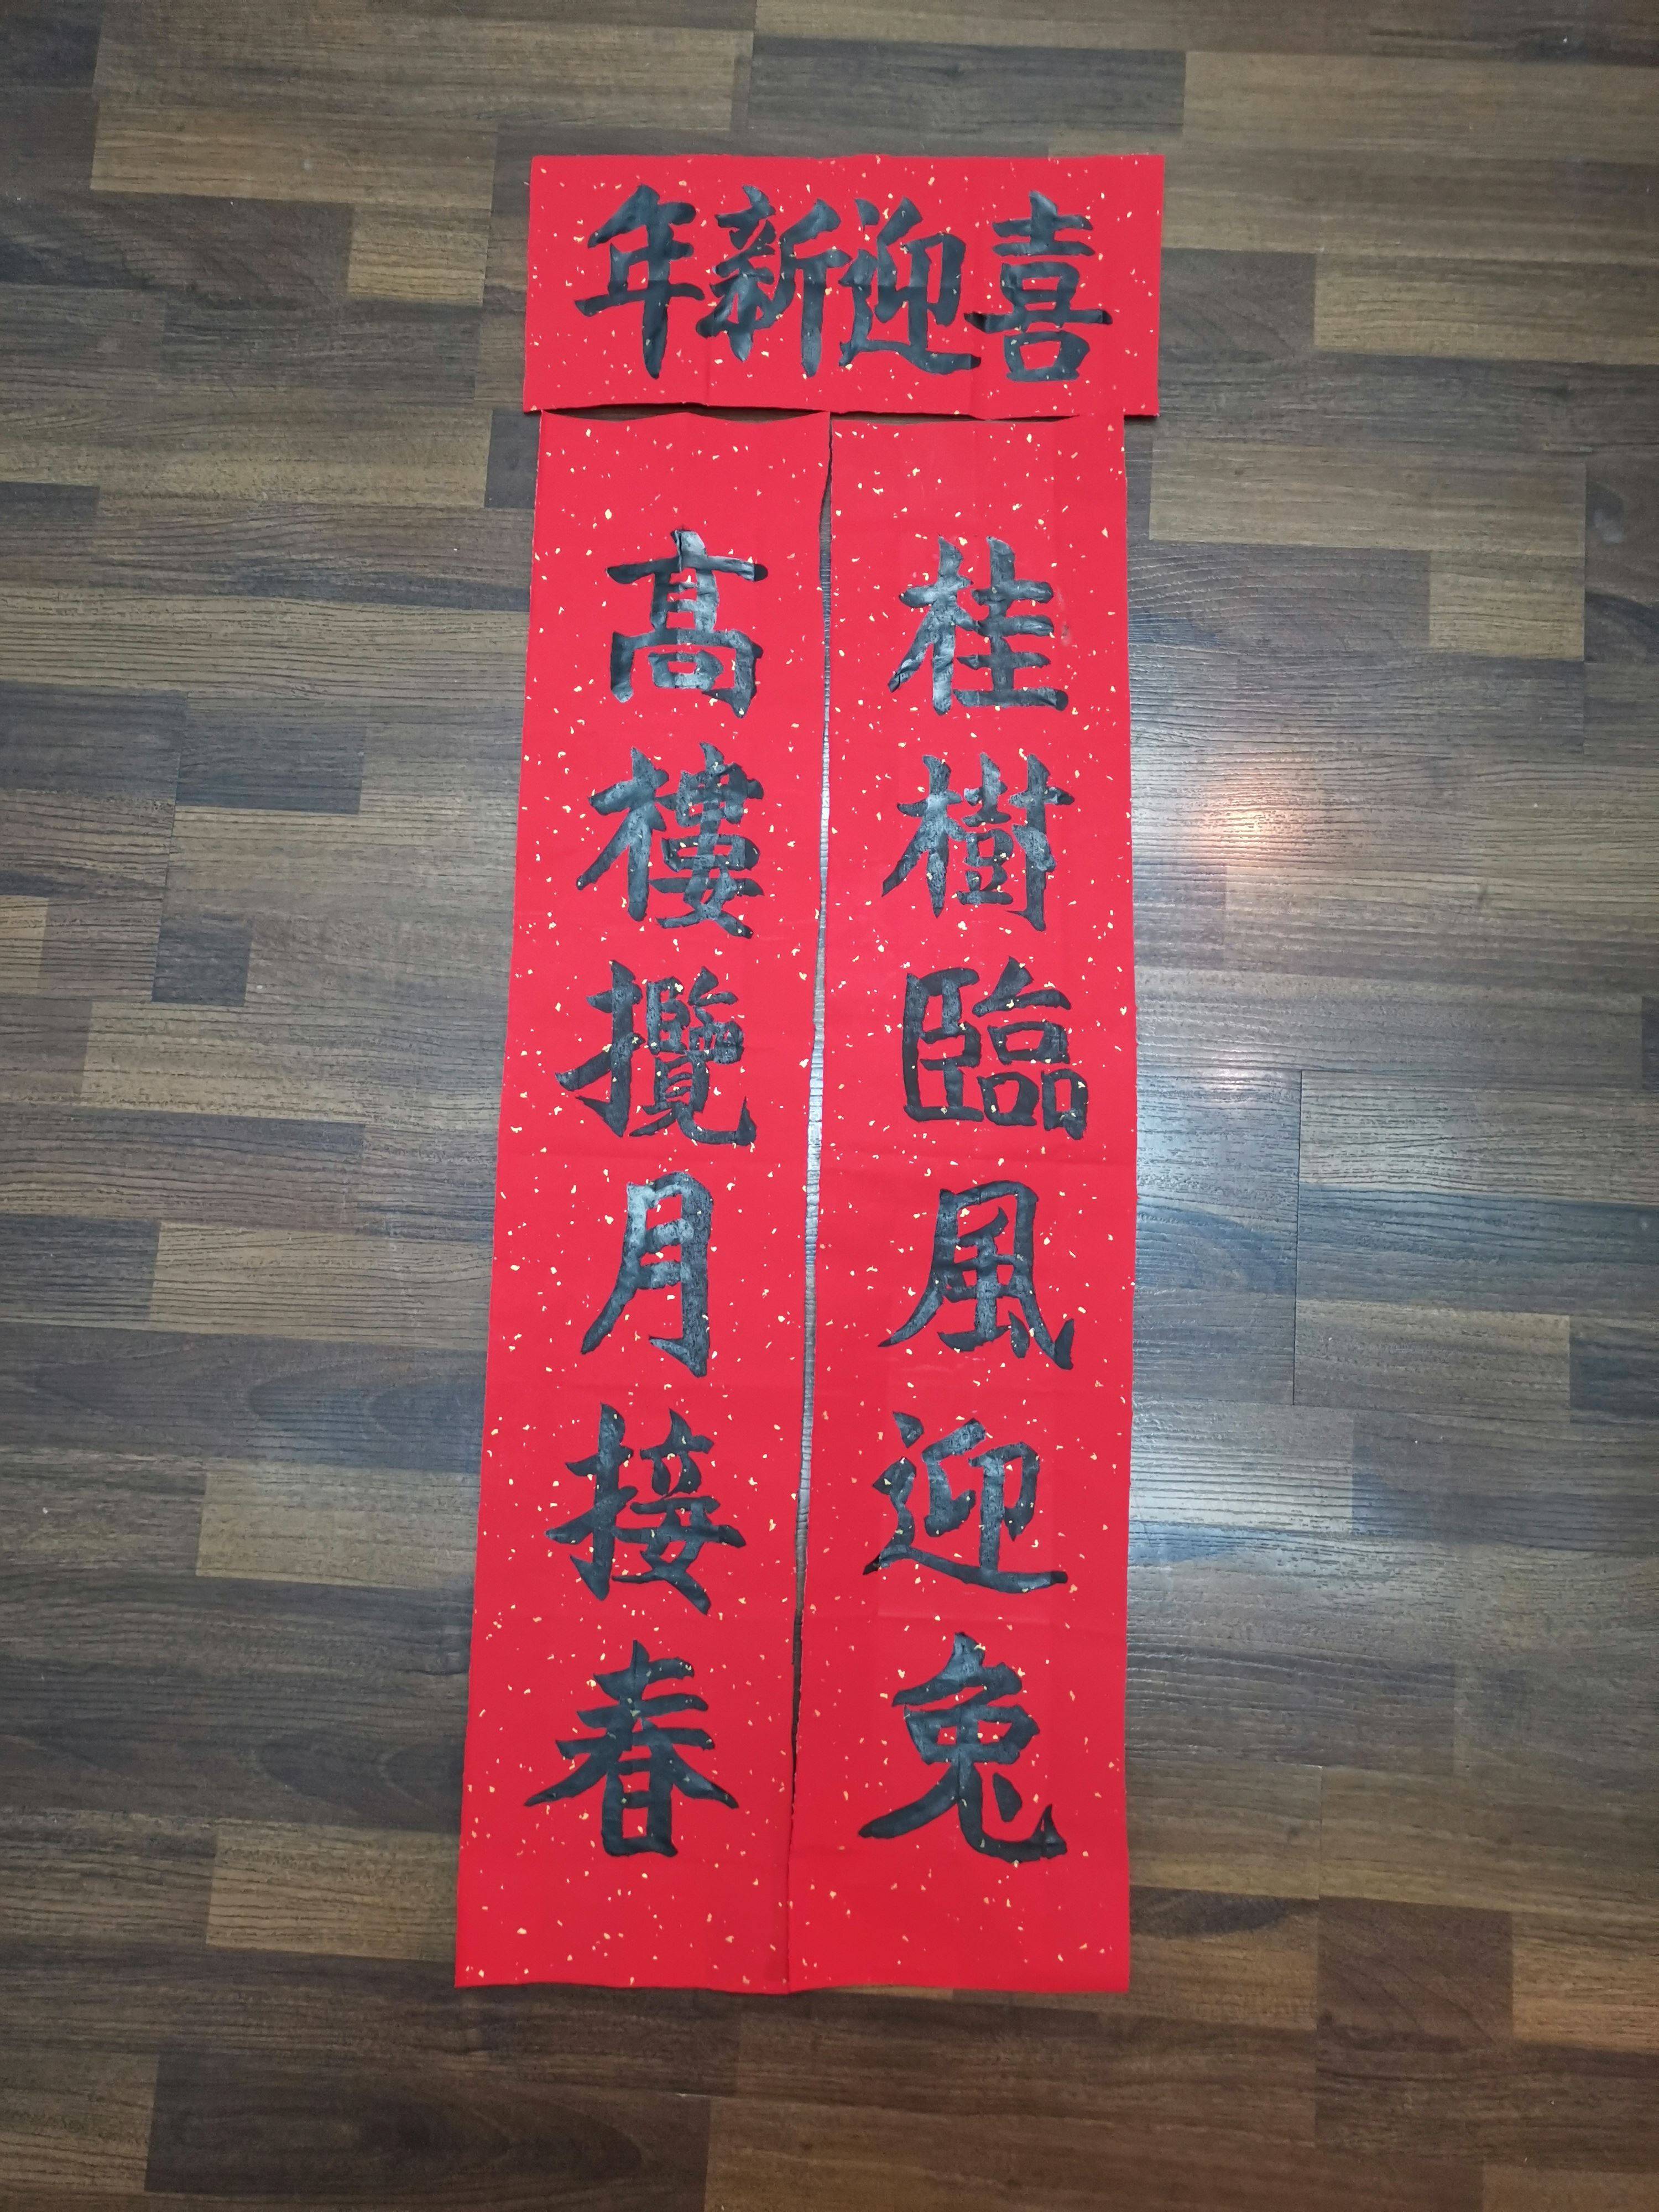 喜迎新年
桂樹臨風迎兔
高樓攬月接春